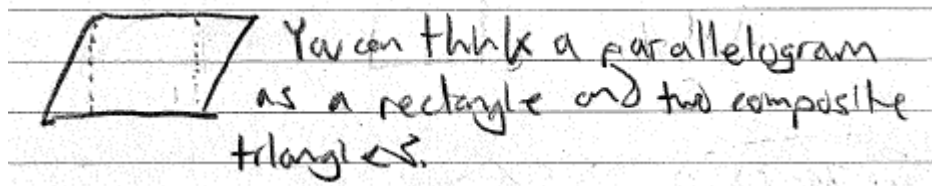 You can think a parallelogram
as a rectangle and two composite
triangles.